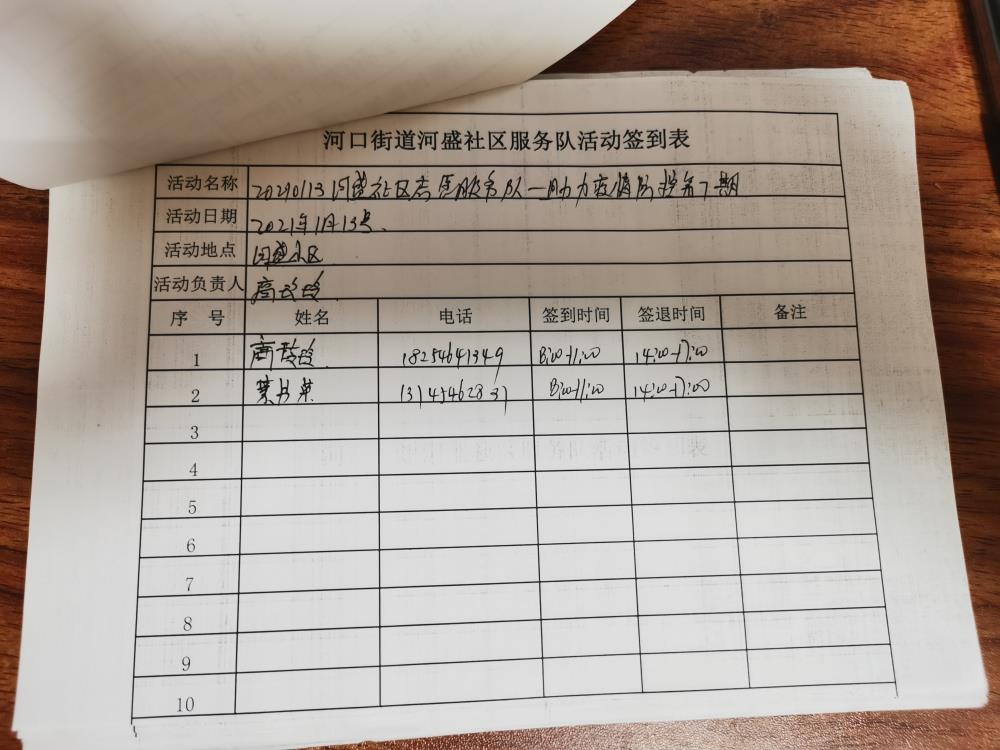 河口街道河盛社区服务队活动签到表
活动名称 20210113河盛社区志愿服务队—助力疫情防控第7期
活动日期 2021年1月13号.
活动地点 河盛社区
活动负责人 高
序 号 姓名 电话 签到时间 签退时间 备注
1 高 18254641349 8:00-11:00 14:00-17:00
2 13145462837 8:00-11:00 14:00-17:00
3
4
5
6
7
8
9
10